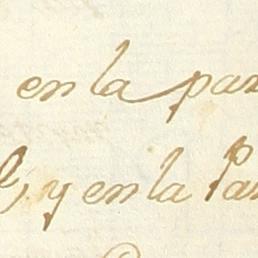 en la par
, y en la Par